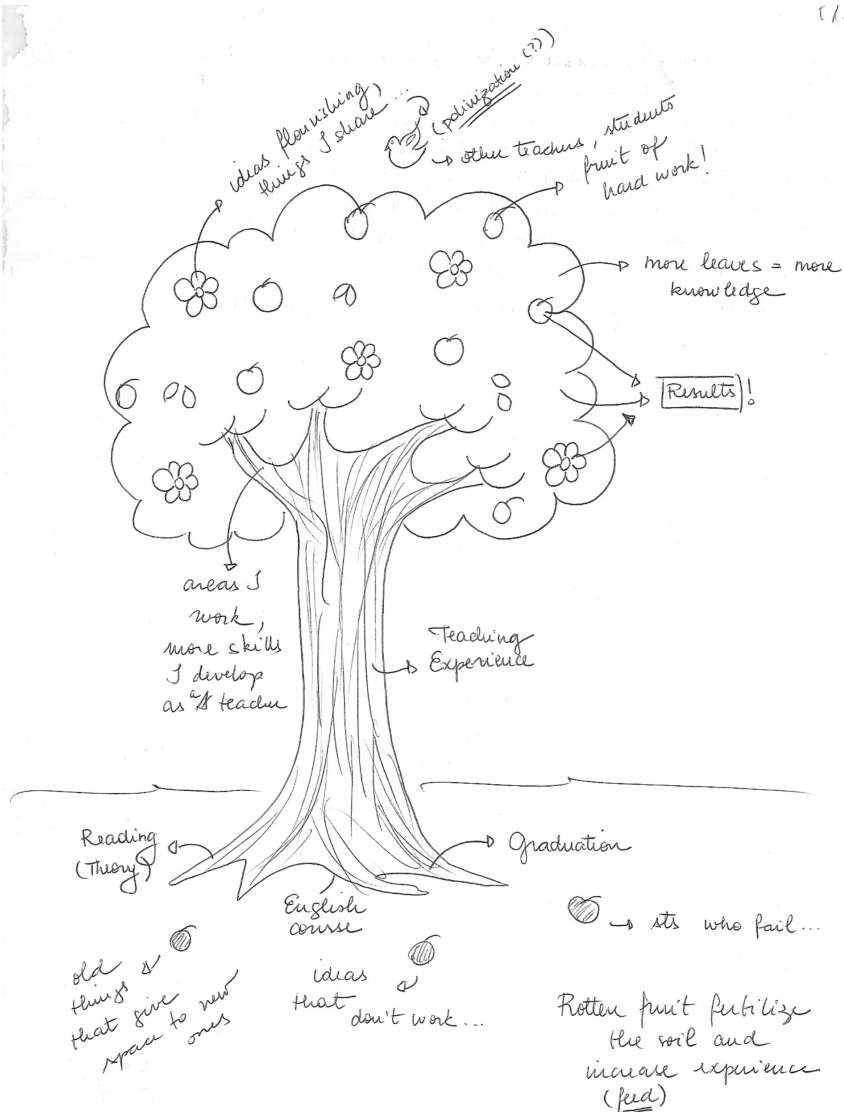 1/
ideas flourishing,
things I share...
(polinization (?))
→ other teachers, students
fruit of
hard work!
more leaves = more
knowledge
Results!
areas I
work,
more skills
I develop
as a teacher
Teaching
Experience
Reading
(Theory)
Graduation
English
course
→ sts who fail...
old
things
that give
space to new
ones
ideas
that
don't work...
Rotten fruit fertilize
the soil and
increase experience
(feed)